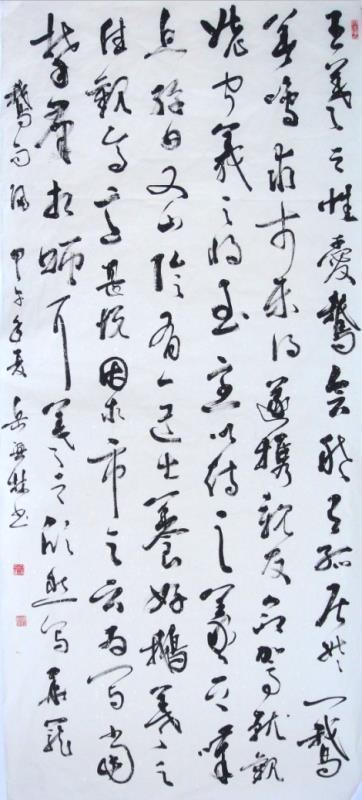 王羲之性愛鵝會稽有孤居姥一鵝
善鳴求市未得遂攜親友命駕就觀
姥聞羲之將至烹以待之羲之嘆
息弥日又山陰有一道士養好鵝羲之
往觀焉意甚悦固求市之云為寫當
舉群相贈耳羲之欣然寫畢籠
鵝而歸 甲午年夏 岳林書